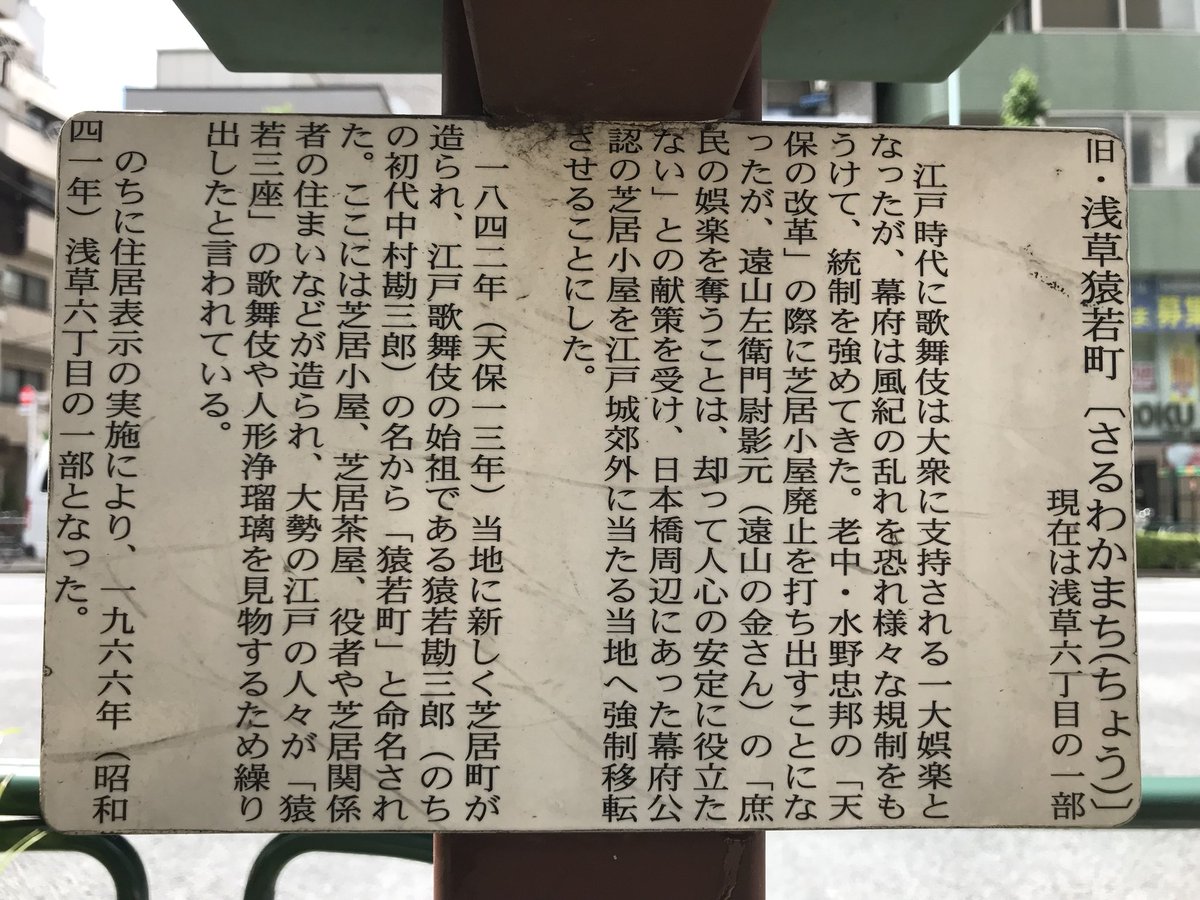 旧・浅草猿若町〔さるわかまち(ちょう)〕
現在は浅草六丁目の一部
江戸時代に歌舞伎は大衆に支持される一大娯楽と
なったが、幕府は風紀の乱れを恐れ様々な規制をも
うけて、統制を強めてきた。老中・水野忠邦の「天
保の改革」の際に芝居小屋廃止を打ち出すことにな
ったが、遠山左衛門尉影元（遠山の金さん）の「庶
民の娯楽を奪うことは、却って人心の安定に役立た
ない」との献策を受け、日本橋周辺にあった幕府公
認の芝居小屋を江戸城郊外に当たる当地へ強制移転
させることにした。
一八四二年（天保一三年）当地に新しく芝居町が
造られ、江戸歌舞伎の始祖である猿若勘三郎（のち
の初代中村勘三郎）の名から「猿若町」と命名され
た。ここには芝居小屋、芝居茶屋、役者や芝居関係
者の住まいなどが造られ、大勢の江戸の人々が「猿
若三座」の歌舞伎や人形浄瑠璃を見物するため繰り
出したと言われている。
のちに住居表示の実施により、一九六六年（昭和
四一年）浅草六丁目の一部となった。